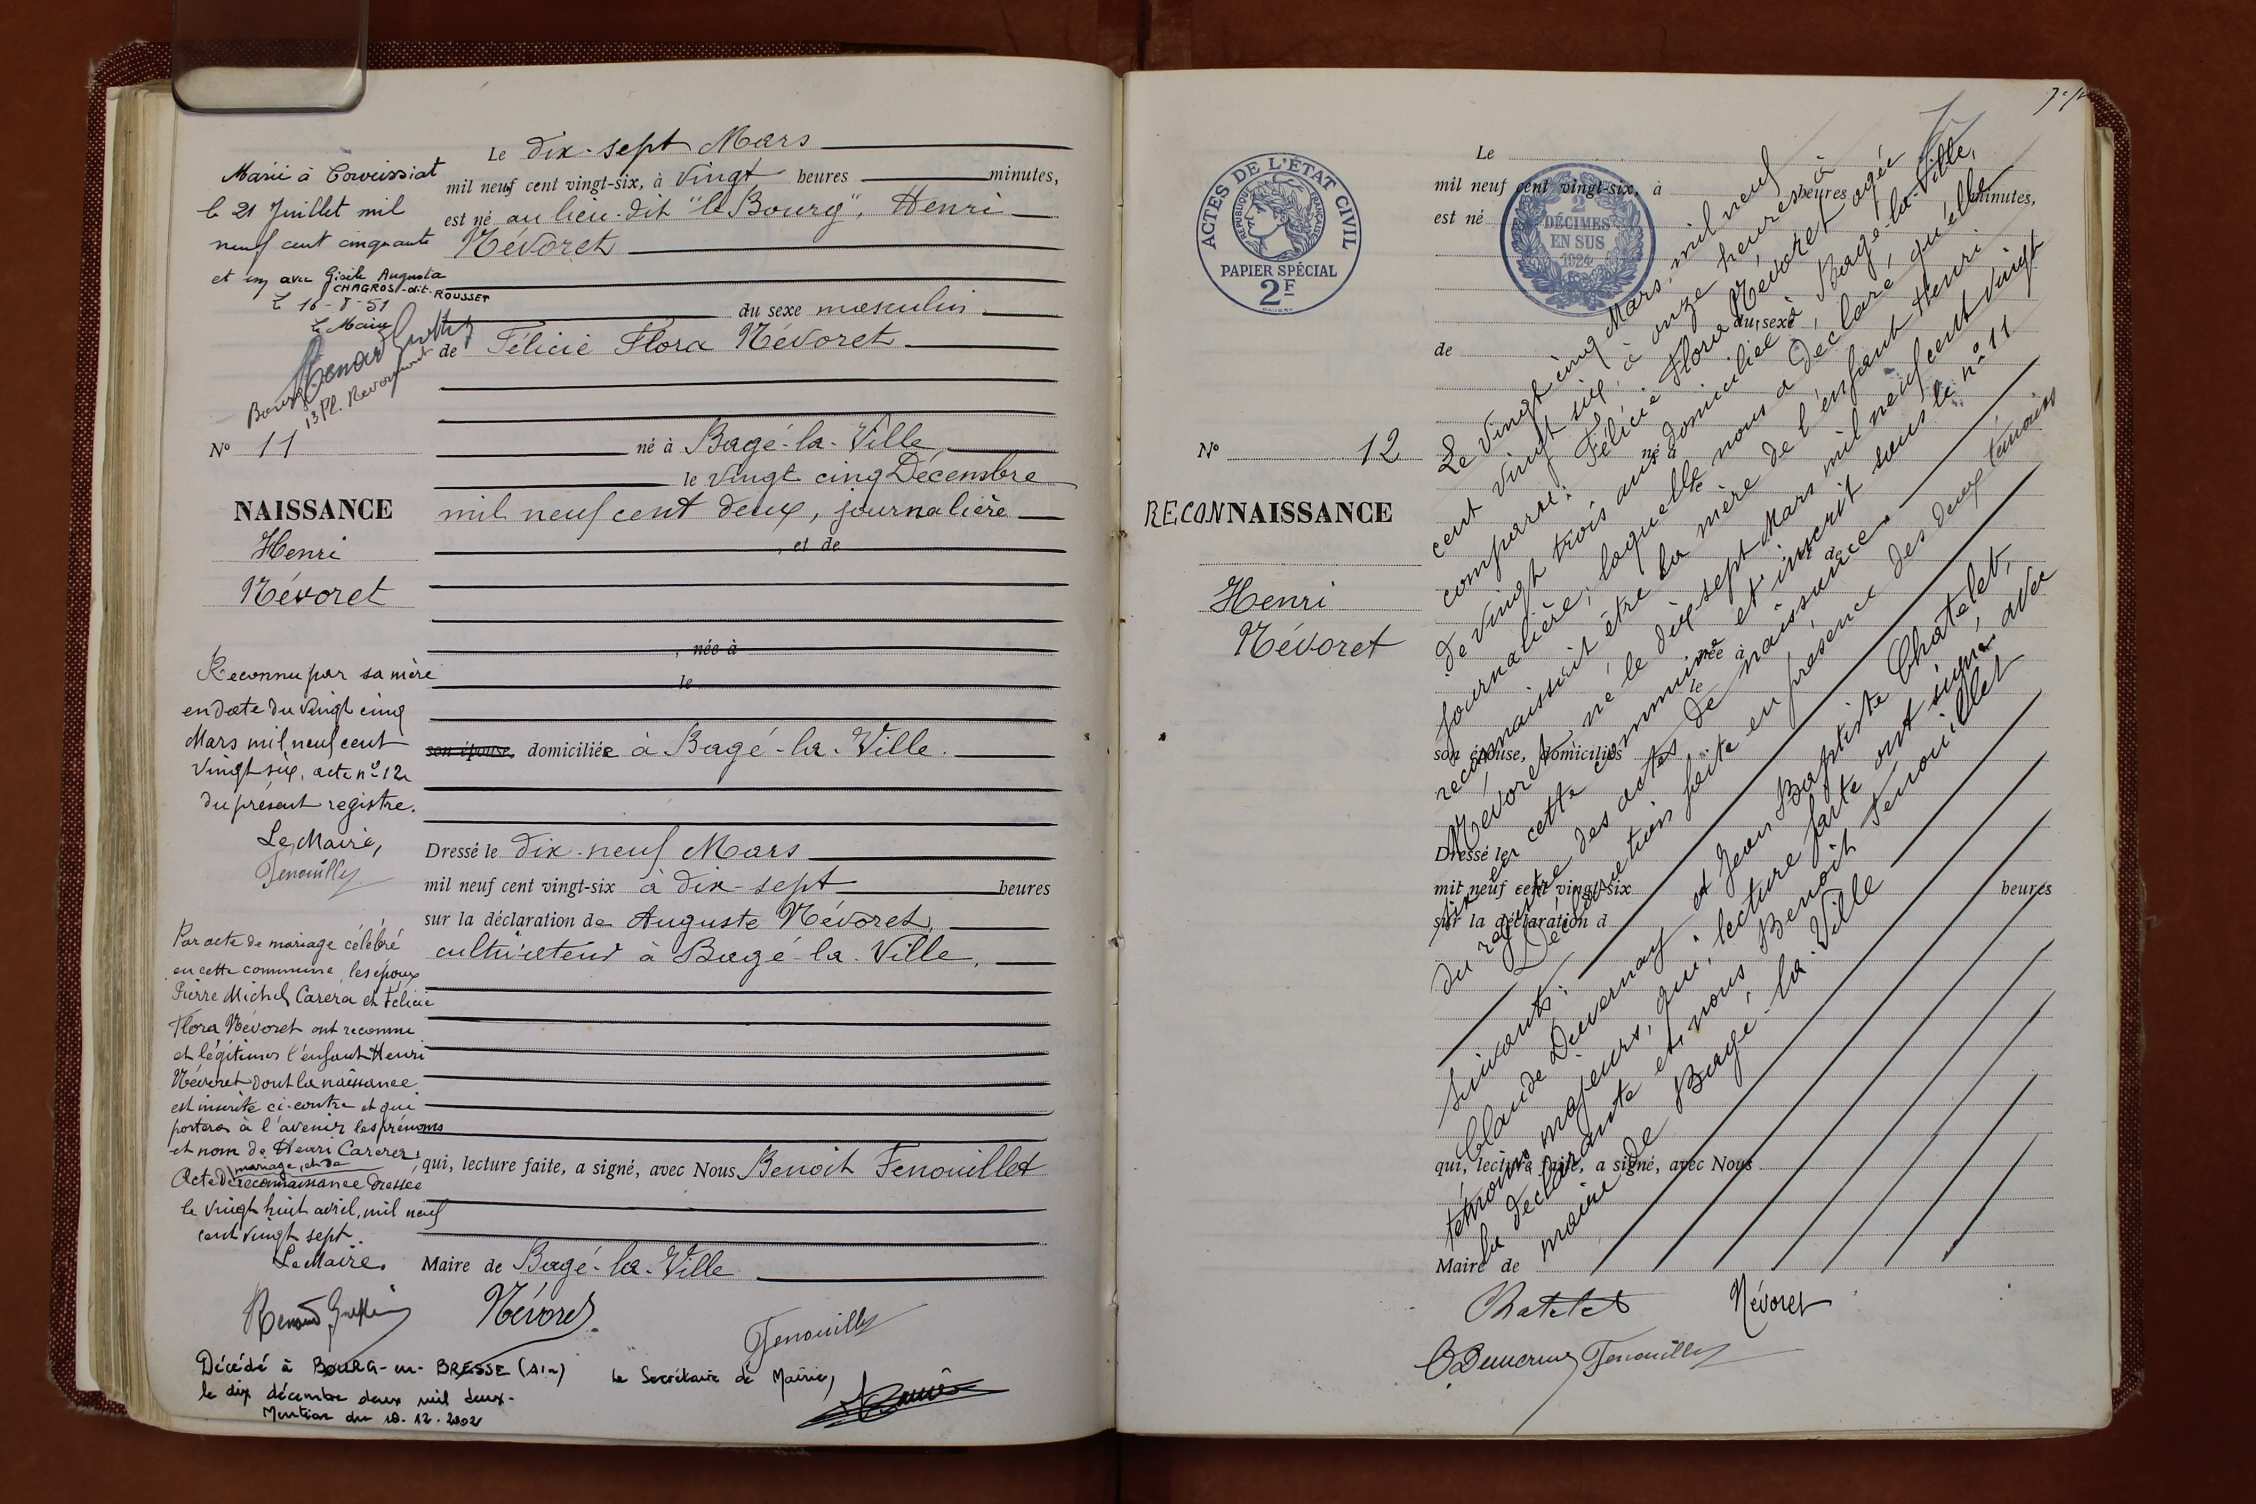 Marié à Corveissiat
le 21 Juillet mil
neuf cent cinquante
et un avec Gisèle Augusta
CHAGROS-dit-ROUSSET
Le 16-8-51
Le Maire
Nº 11
NAISSANCE
Henri
Névoret
Reconnu par sa mère
en date du vingt cinq
Mars mil neuf cent
vingt six, acte nº 12
du présent registre.
Le Maire,
Par acte de mariage célébré
en cette commune, les époux
Pierre Michel Carera et Félicie
Flora Névoret ont reconnu
et légitimer l'enfant Henri
Névoret dont la naissance
est inscrite ci-contre et qui
portera à l'avenir les prénoms
et nom de Henri Carera,
mariage, et de
Acte de reconnaissance dressée
le vingt huit avril, mil neuf
cent vingt sept.
Le Maire.
Le dix-sept Mars
mil neuf cent vingt-six, à vingt heures minutes,
est né au lieu-dit "le Bourg", Henri
Névoret
du sexe masculin
de Félicie Flora Névoret
né à Bagé-la-Ville
le vingt cinq Décembre
mil neuf cent deux, journalière
, et de
, née à
le
son épouse, domiciliée à Bagé-la-Ville.
Dressé le dix-neuf Mars
mil neuf cent vingt-six à dix-sept heures
sur la déclaration de Auguste Névoret,
cultivateur à Bagé-la-Ville,
qui, lecture faite, a signé, avec Nous Benoit Fenouillet
Maire de Bagé-la-Ville
Névoret
Décédé à BOURG-en-BRESSE (Ain)
le dix décembre deux mil deux.
Mention du 18.12.2002
Le Secrétaire de Mairie,
ACTES DE L'ÉTAT CIVIL
RÉPUBLIQUE FRANÇAISE
PAPIER SPÉCIAL
2F
2
DÉCIMES
EN SUS
1924
Nº 12
RECONNAISSANCE
Henri
Névoret
Le
mil neuf cent vingt-six, à heures minutes,
est né
du sexe
de
né à
le
et de
née à
le
son épouse, domiciliés
Dressé le
mil neuf cent vingt-six heures
sur la déclaration d
qui, lecture faite, a signé, avec Nous
Maire de
Le vingt cinq Mars, mil neuf
cent vingt six, à onze heures à
comparu: Félicie Flora Névoret agée
de vingt trois ans domiciliée à Bagé-la-Ville,
journalière, laquelle nous a déclaré, qu'elle
reconnaissait être la mère de l'enfant Henri
Névoret né le dix sept Mars mil neuf cent vingt
six en cette commune et inscrit sous le nº 11
du registre des actes de naissance
Déclaration faite en présence des deux témoins
suivants:
Claude Duvernay et Jean Baptiste Chatelet,
témoins majeurs, qui, lecture faite ont signés avec
la déclarante et nous Benoit Fenouillet
maire de Bagé-la-Ville
Chatelet
Névoret